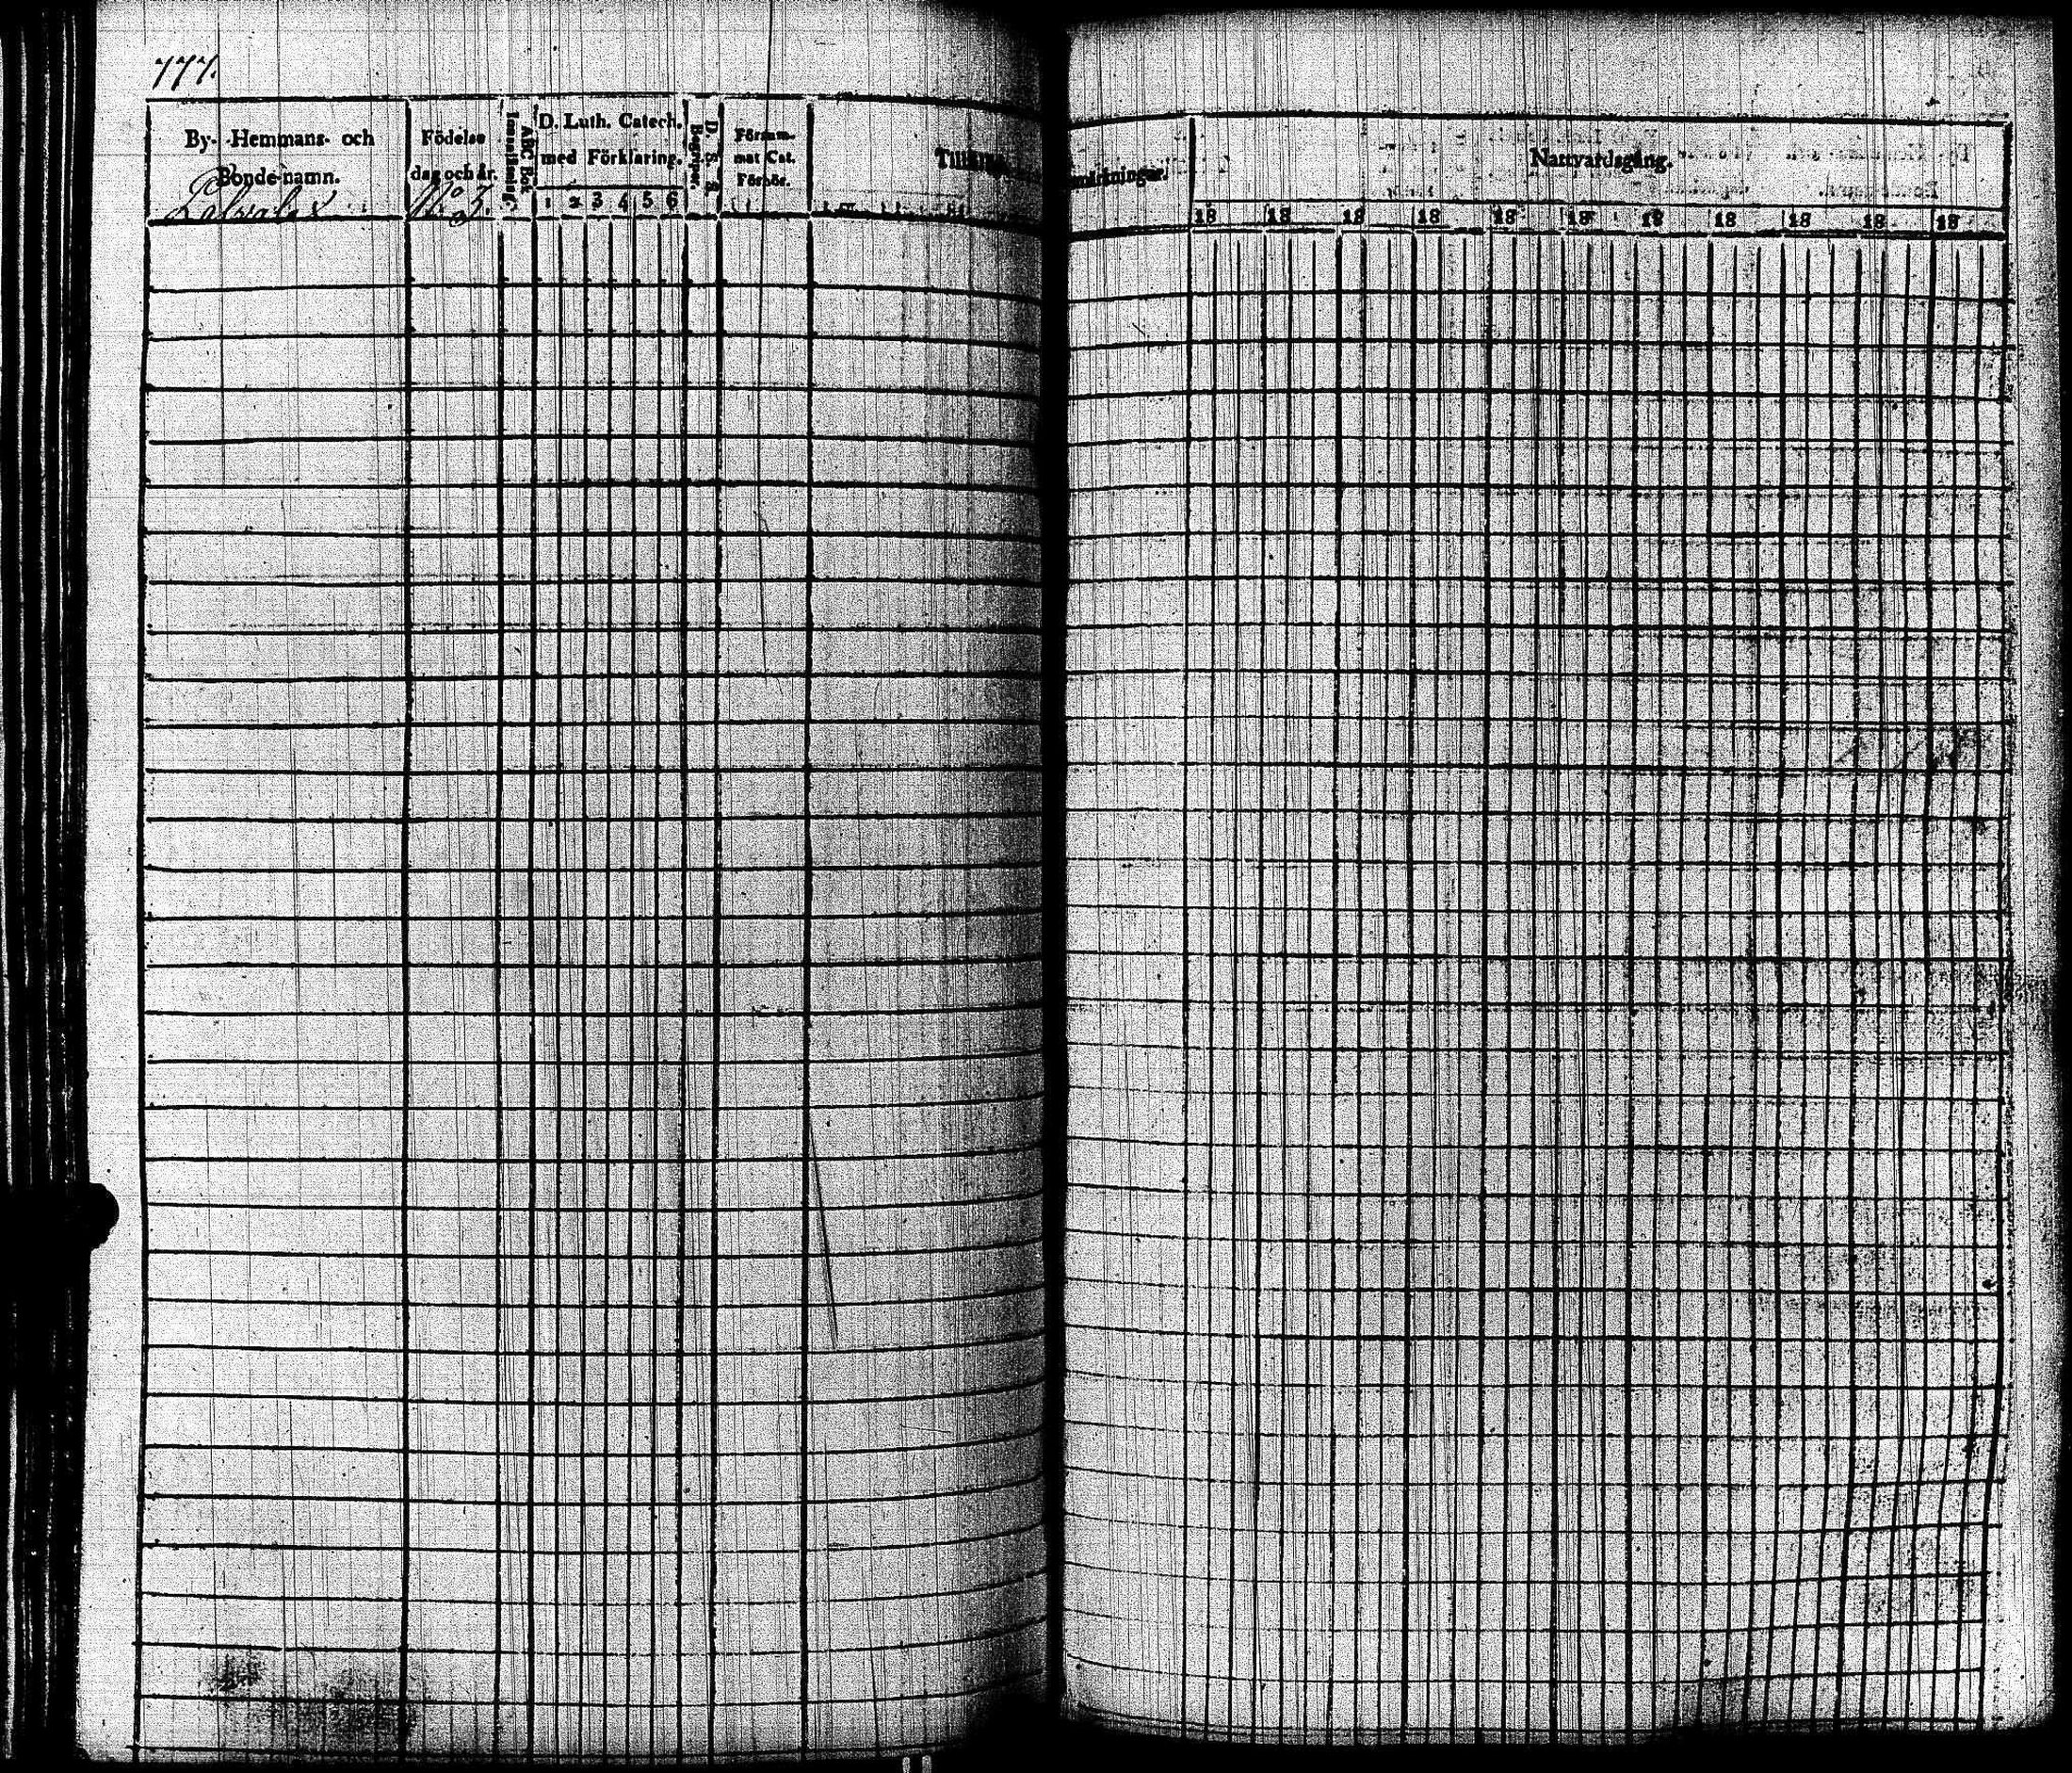 777.
By- Hemmans- och
Bonde-namn.
Födelse
dag och år.
ABC Bok
Innanläsning.
D. Luth. Catech.
med Förklaring.
1 2 3 4 5 6
D. S. B.
Begrepp.
Försum-
mat Cat.
Förhör.
No 3.
Nattvardsgång.
18 18 18 18 18 18 18 18 18 18 18